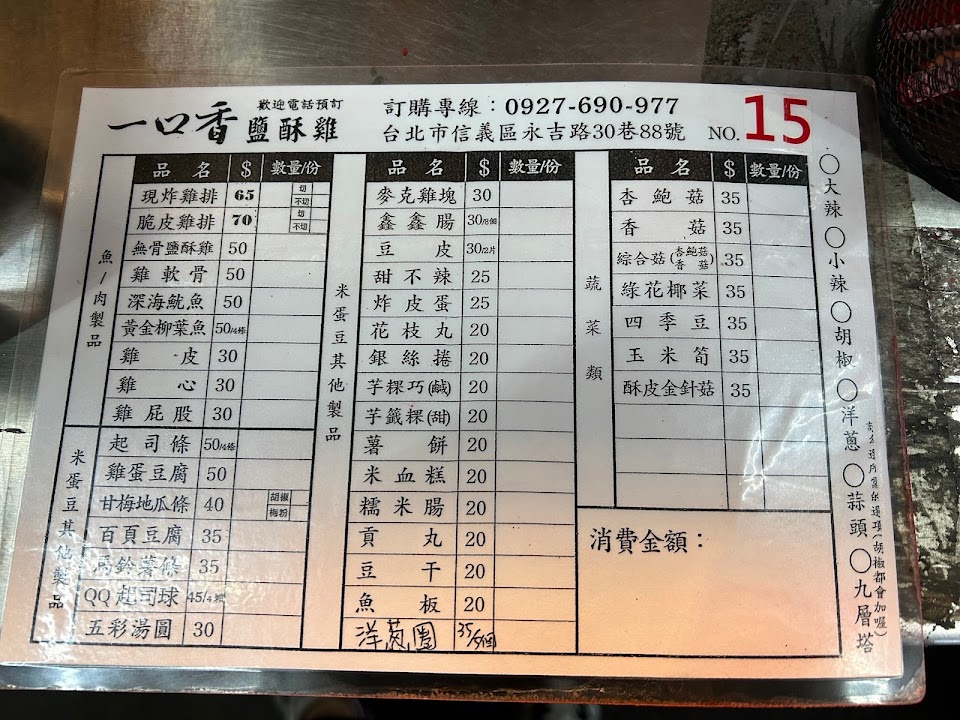 一口香 鹽酥雞
歡迎電話預訂
訂購專線：0927-690-977
台北市信義區永吉路30巷88號 NO. 15
品名 $ 數量/份
魚/肉製品
現炸雞排 65 切 不切
脆皮雞排 70 切 不切
無骨鹽酥雞 50
雞軟骨 50
深海魷魚 50
黃金柳葉魚 50/4條
雞皮 30
雞心 30
雞屁股 30
米蛋豆其他製品
起司條 50/4條
雞蛋豆腐 50
甘梅地瓜條 40 胡椒 梅粉
百頁豆腐 35
馬鈴薯條 35
QQ起司球 45/4顆
五彩湯圓 30
品名 $ 數量/份
米蛋豆其他製品
麥克雞塊 30
鑫鑫腸 30/8個
豆皮 30/2片
甜不辣 25
炸皮蛋 25
花枝丸 20
銀絲捲 20
芋粿巧(鹹) 20
芋籤粿(甜) 20
薯餅 20
米血糕 20
糯米腸 20
貢丸 20
豆干 20
魚板 20
洋蔥圈 35/5個
品名 $ 數量/份
蔬菜類
杏鮑菇 35
香菇 35
綜合菇(杏鮑菇 香菇) 35
綠花椰菜 35
四季豆 35
玉米筍 35
酥皮金針菇 35
消費金額：
○大辣 ○小辣 ○胡椒 ○洋蔥 ○蒜頭 ○九層塔
請勾選所需的選項(胡椒都會加喔)